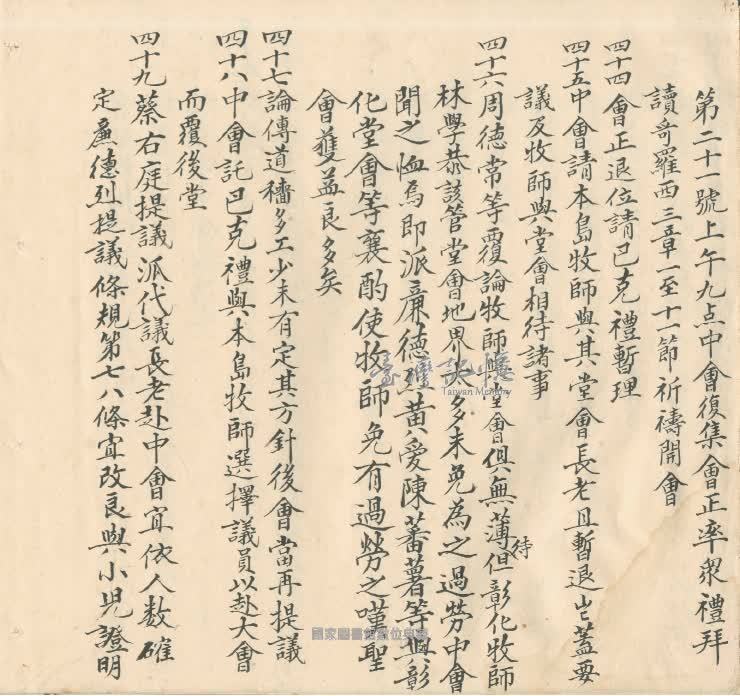 第二十一號上午九点中會復集會正率眾禮拜
讀哥羅西三章一至十一節祈禱開會
四十四會正退位請巴克禮暫理
四十五中會請本島牧師與其堂會長老且暫退出蓋要
議及牧師與堂會相待諸事
四十六周德常等覆論牧師與堂會俱無薄待但彰化牧師
林學恭該管堂會地界太多未免為之過勞中會
聞之恤焉即派廉德烈黃愛陳蕃薯等與彰
化堂會等襄酌使牧師免有過勞之嘆聖
會獲益良多矣
四十七論傳道穡多工少未有定其方針後會當再提議
四十八中會託巴克禮與本島牧師選擇議員以赴大會
而覆後堂
四十九蔡右庭提議派代議長老赴中會宜依人數確
定廉德烈提議條規第七八條宜改良與小兒證明
臺灣記憶
Taiwan Memory
國家圖書館數位典藏